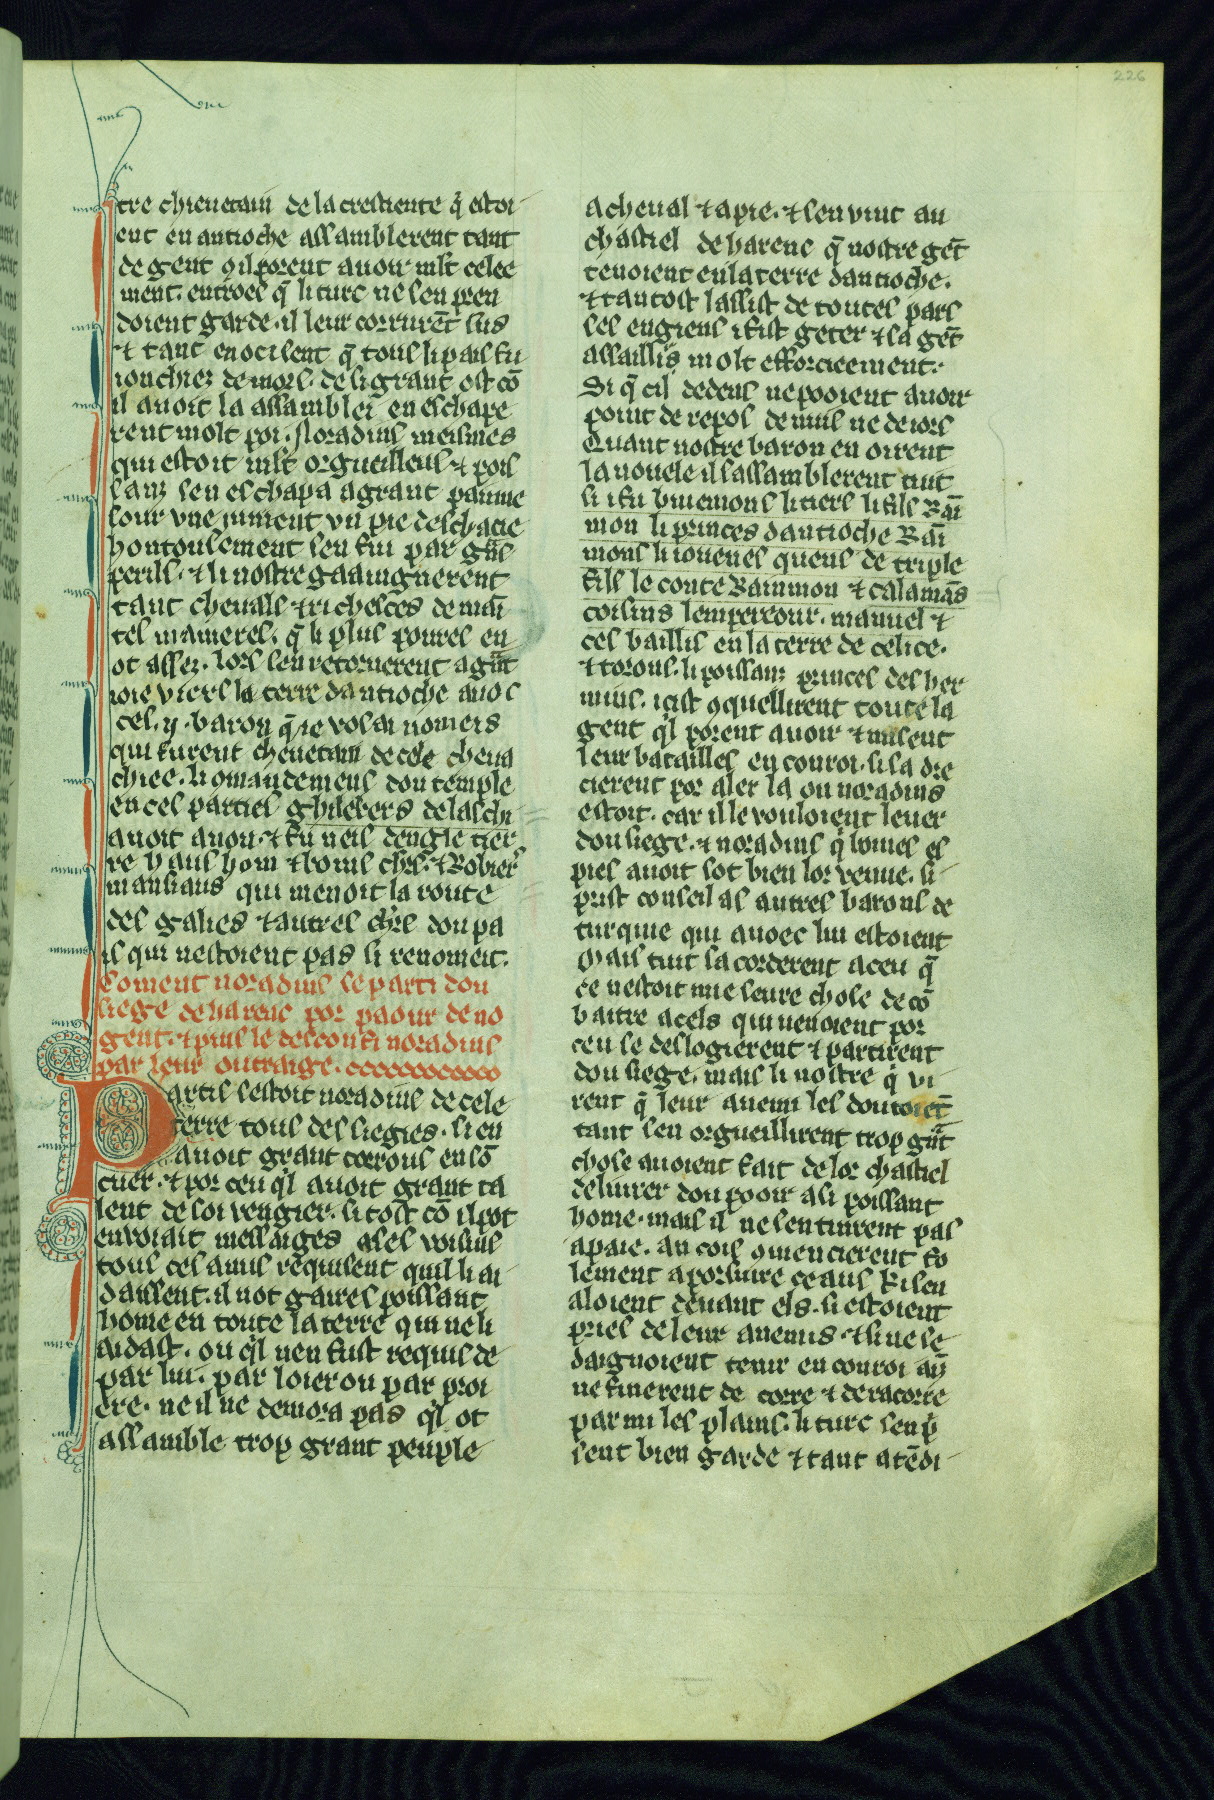 226
tre chieuetain de la crestiente q̃ estoi
ent en antioche assamblerent tant
de gent ꝯ il porent auoir mlt celee
ment. entroes q̃ li turc ne sen pren
doient garde. il leur corrurẽt sus
⁊ tant en ocisent q̃ tous li pais fu
ionchiez de mors. de si grant ost cõ
il auoit la assamblei en eschape
rent molt poi. Noradins meismes
qui estoit mlt orgueilleus ⁊ pois
sanz sen eschapa a grant painne
sour vne iument vn pie deschacie
hontousement sen fui par grãs
perils. ⁊ li nostre gaaignerent
tant cheuals ⁊ richesces de mai
tes manieres. q̃ li plus poures en
ot assez. lors sen retornerent a grãt
ioie viers la terre dantioche auoc
ces .ij. baron q̃ ie vos ai nomeis
qui furent cheuetain de cele cheua
chiee. li ꝯmandemens dou temple
en ces parties ghilebers de laschi
auoit a non. ⁊ fu neis dengle tier
re haus hom ⁊ bons chrs. ⁊ Robiers
mansiaus qui menoit la route
des galies ⁊ autres chrs dou pa
is qui nestoient pas si renomeit.
Coment noradins se parti dou
siege de harenc por paour de no
gent. ⁊ puis se desconfi noradins
par leur outraige. ccccccccccccc
Partis sestoit noradins de cele
terre tous des siegies. si en
auoit grant corrous en sõ
cuer. ⁊ por ceu q̓l auoit grant ta
lent de soi vengier. si tost cõ il pot
enuoiait messaiges a ses voisins
tous ces amis requisent quil li ai
daissent. il not gaires poissant
home en toute la terre qui ne li
aidast. ou q̓l nen fust requis de
par lui. par loier ou par proi
ere. ne il ne demora pas q̓l ot
assamble trop grant peuple
a cheual ⁊ a pie. ⁊ sen vint au
chastiel de harenc q̃ nostre gẽt
tenoient en la terre dantioche.
⁊ tantost lassist de toutes pars
ses engiens i fist geter ⁊ sa gẽt
assaillis molt efforcieement.
Si q̃ cil dedens ne pooient auoir
point de repos de nuis ne de iors
Quant nostre baron en oirent
la nouele il sassamblerent tuit
si i fu buiemons li tiers li fils Rai
mon li princes dantioche Rai
mons li iouenes quens de triple
fils le conte Raimmon ⁊ calamãs
coisins lempereour. manuel ⁊
ces baillis en la terre de celice.
⁊ torous. li poissanz princes des her
mins. icist ꝯquellirent toute la
gent q̓l porent auoir ⁊ misent
leur batailles en couroi. si sa dre
cierent por aler la ou noradins
estoit. car il le vouloient leuer
dou siege. ⁊ noradins q̓ boines es
pies auoit sot bien lor venue. si
prist conseil as autres barons de
turquie qui auoec lui estoient
Mais tuit sa corderent a ceu q̃
ce nestoit mie seure chose de cõ
batre a cels qui uenoient por
ceu se deslogierent ⁊ partirent
dou siege. mais li nostre q̓ vi
rent q̃ leur anemi les doutoiẽt
tant sen orgueillirent trop grãt
chose auoient fait de lor chastiel
deliurer dou pooir a si poissant
home. mais il ne sen tinrent pas
a paie. an cois ꝯmencierent fo
lement a porsiure ceaus ki sen
aloient deuant els. si estoient
pries de leur anemis. ⁊ si ne se
daignoient tenir en couroi ainz
ne finerent de corre ⁊ de racorre
par mi les plains. li turc sen p̓
sent bien garde ⁊ tant atẽdi